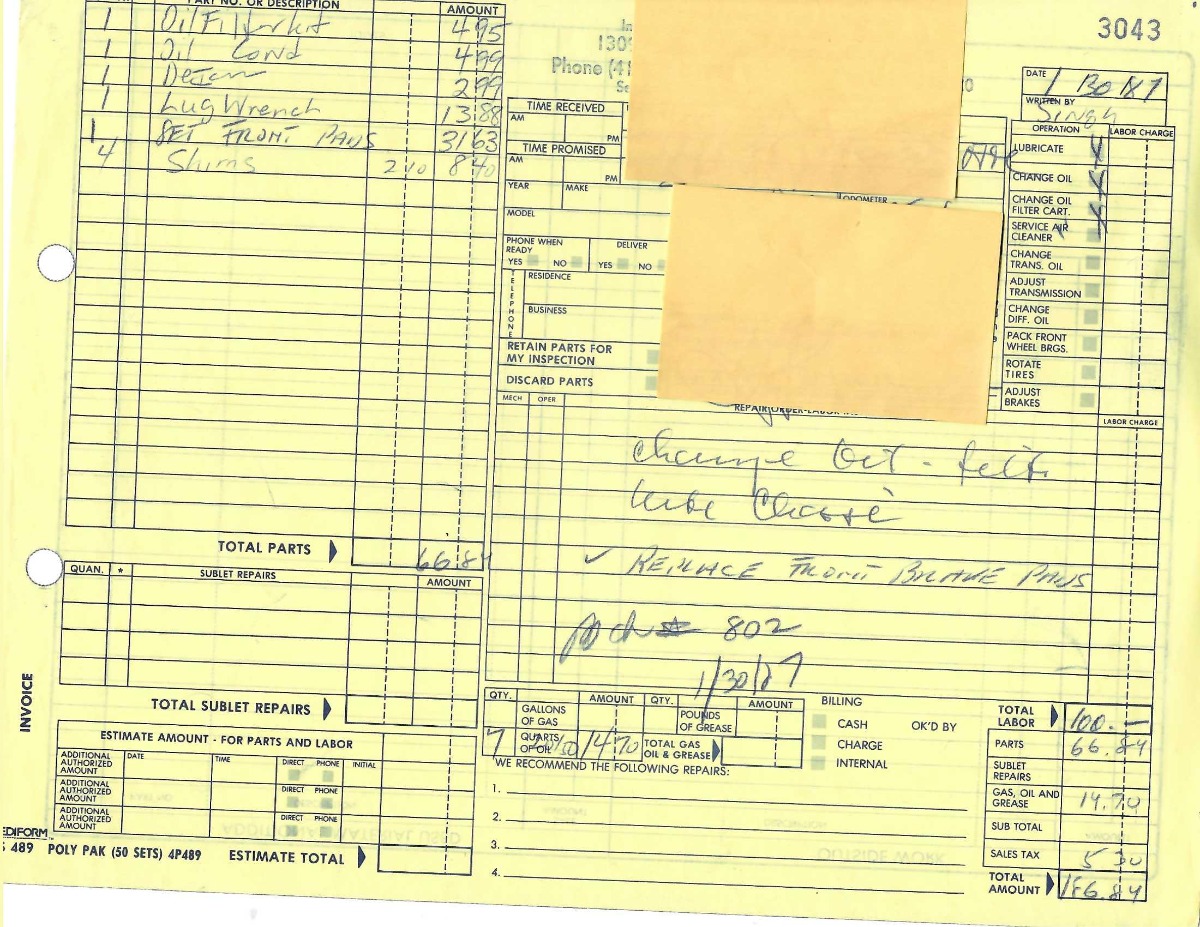 PART NO. OR DESCRIPTION AMOUNT
1 Oil Filter kit 4 95
1 Oil Cond 4 99
1 2 99
1 Lug Wrench 13 88
1 SET FRONT PADS 31 63
4 2 10 8 40
TOTAL PARTS 66.84
QUAN. * SUBLET REPAIRS AMOUNT
TOTAL SUBLET REPAIRS
INVOICE
ESTIMATE AMOUNT - FOR PARTS AND LABOR
ADDITIONAL AUTHORIZED AMOUNT DATE TIME DIRECT PHONE INITIAL
ADDITIONAL AUTHORIZED AMOUNT DIRECT PHONE
ADDITIONAL AUTHORIZED AMOUNT DIRECT PHONE
EDIFORM
489 POLY PAK (50 SETS) 4P489 ESTIMATE TOTAL
3043
1309
Phone (41
DATE 1 30 87
WRITTEN BY Singh
TIME RECEIVED
AM PM
TIME PROMISED
AM PM
YEAR MAKE
ODOMETER
MODEL
PHONE WHEN READY DELIVER
YES NO YES NO
TELEPHONE
RESIDENCE
BUSINESS
RETAIN PARTS FOR
MY INSPECTION
DISCARD PARTS
OPERATION LABOR CHARGE
LUBRICATE
CHANGE OIL
CHANGE OIL
FILTER CART.
SERVICE AIR
CLEANER
CHANGE
TRANS. OIL
ADJUST
TRANSMISSION
CHANGE
DIFF. OIL
PACK FRONT
WHEEL BRGS.
ROTATE
TIRES
ADJUST
BRAKES
MECH OPER REPAIR ORDER-LABOR LABOR CHARGE
Change Oil - filt.
lube Chassi
✓ REPLACE FRONT BRAKE PADS
pd ch# 802
1/30/87
QTY. AMOUNT QTY. AMOUNT
GALLONS OF GAS POUNDS OF GREASE
7 QUARTS OF OIL 14.70 TOTAL GAS OIL & GREASE
BILLING
CASH OK'D BY
CHARGE
INTERNAL
WE RECOMMEND THE FOLLOWING REPAIRS:
1.
2.
3.
4.
TOTAL LABOR 100.—
PARTS 66.84
SUBLET REPAIRS
GAS, OIL AND GREASE 14.70
SUB TOTAL
SALES TAX 5 30
TOTAL AMOUNT 186.84